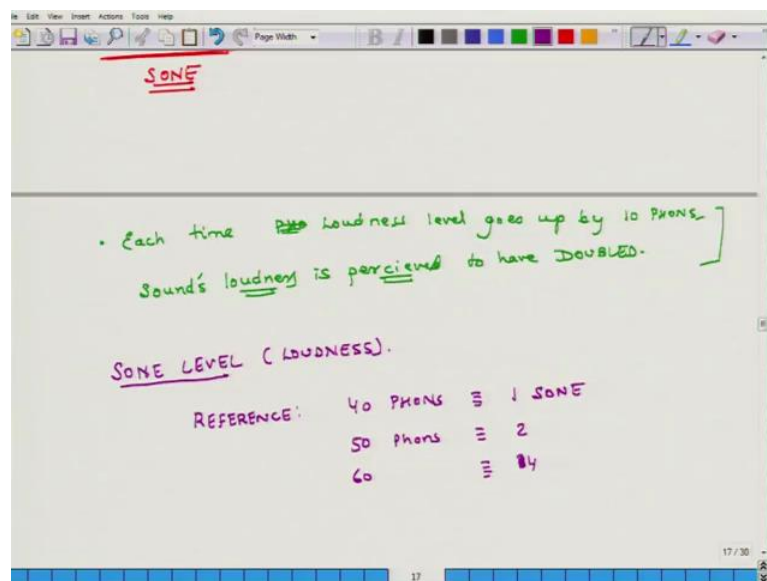 Edit View Insert Actions Tools Help
Page Width
SONE
• Each time Loudness level goes up by 10 PHONS
Sound's loudness is percieved to have DOUBLED.
SONE LEVEL (LOUDNESS).
REFERENCE: 40 PHONS ≡ 1 SONE
50 Phons ≡ 2
60 ≡ 4
17 / 30
17